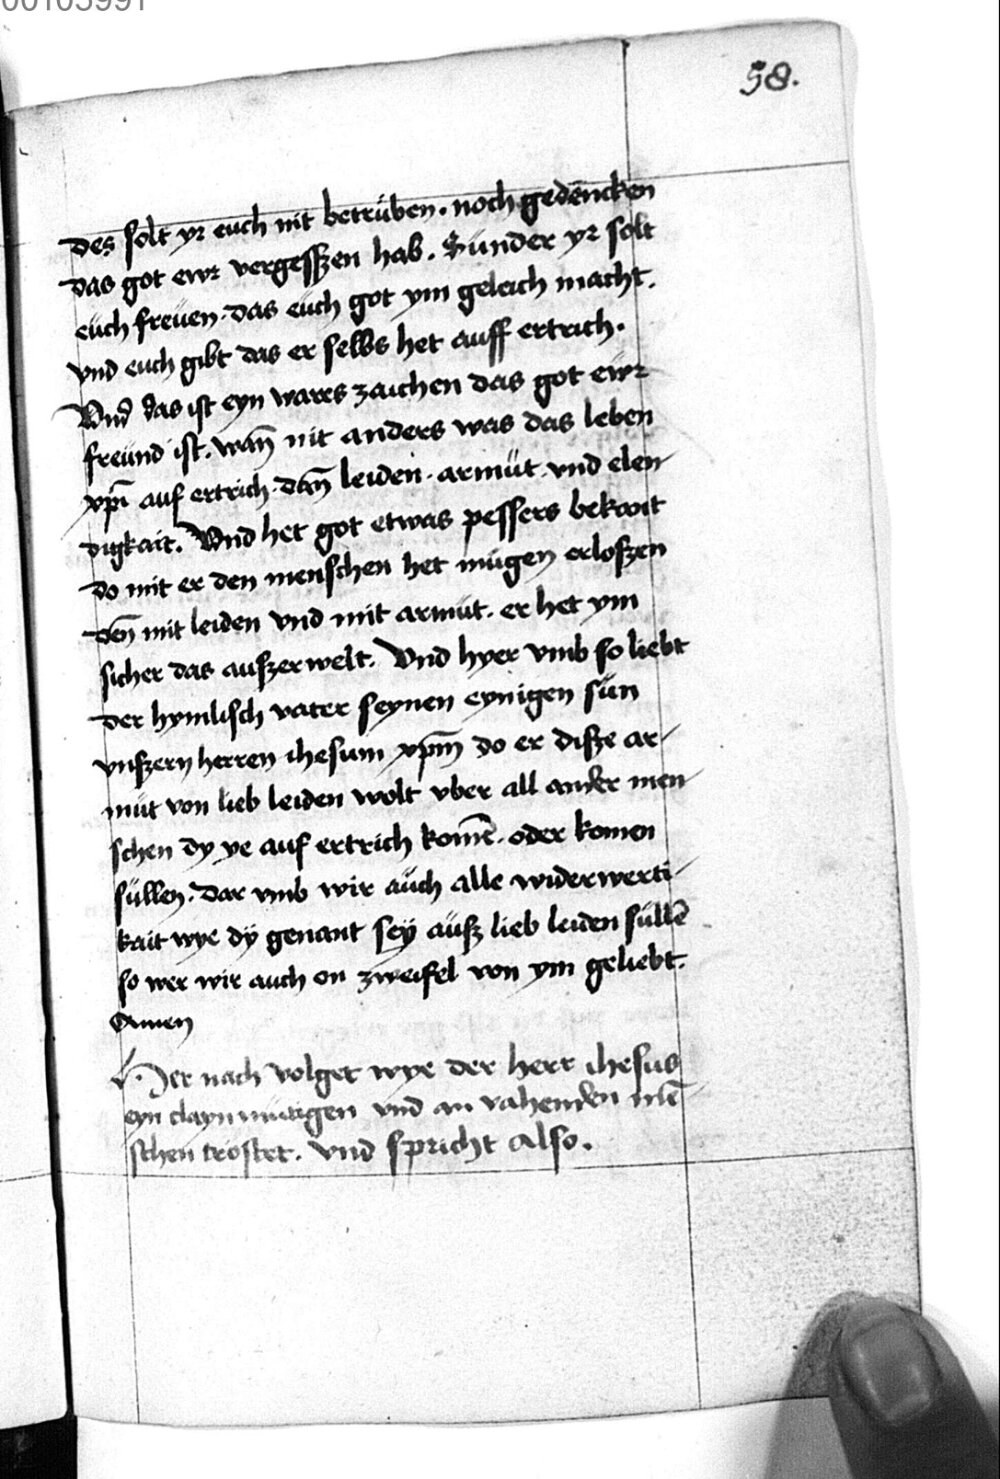 00103991
58.
Des solt yr euch nit betrüben. noch gedencken
das got ewr vergesszen hab. Sunder yr solt
euch freüen. das euch got ym geleich macht.
vnd euch gibt das er selbs het auff ertrich.
Vnd das ist eyn warrs zaichen das got ewr
freund ist. wañ nit anders was das leben
xp̃i auf ertrich. dañ leiden. armüt vnd elen
digkait. Vnd het got etwas pessers bekant
do mit er den menschen het mügen erloszen
deñ mit leiden vnd mit armüt. er het ym
sicher das auszerwelt. Vnd hyer vmb so liebt
der hymlisch vater seynen eynigen sün
vnszern herren ihesum xp̃m do er disze ar
müt von lieb leiden wolt vber all ander men
schen dy ye auf ertrich kom̄e. oder komen
süllen. Dar vmb wir auch alle widerwerti
kait wye dÿ genant seÿ aüsz lieb leiden süllē
so wer wir auch on zweifel von ym geliebt.
Amen
Her nach volget wye der herr ihesus
eyn claynmütigen vnd an vahenden mē
schen tröstet. vnd spricht also.